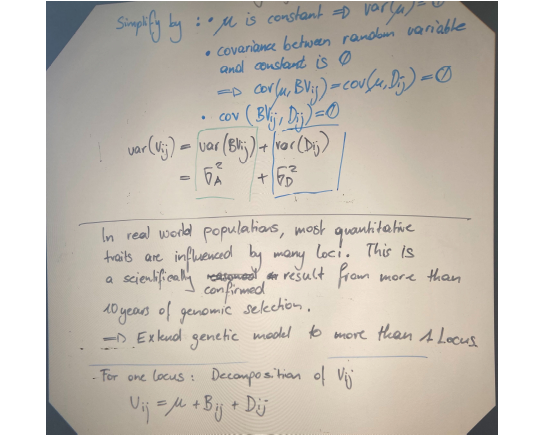 Simplify by : • μ is constant ⇒ var(μ) = 0
• covariance between random variable
and constant is 0
⇒ cov(μ, BVij) = cov(μ, Dij) = 0
• cov (BVij, Dij) = 0
var(Vij) = var(BVij) + var(Dij)
= σ²A + σ²D
In real world populations, most quantitative
traits are influenced by many loci. This is
a scientifically confirmed result from more than
10 years of genomic selection.
⇒ Extend genetic model to more than 1 Locus
- For one locus : Decomposition of Vij
Vij = μ + Bij + Dij